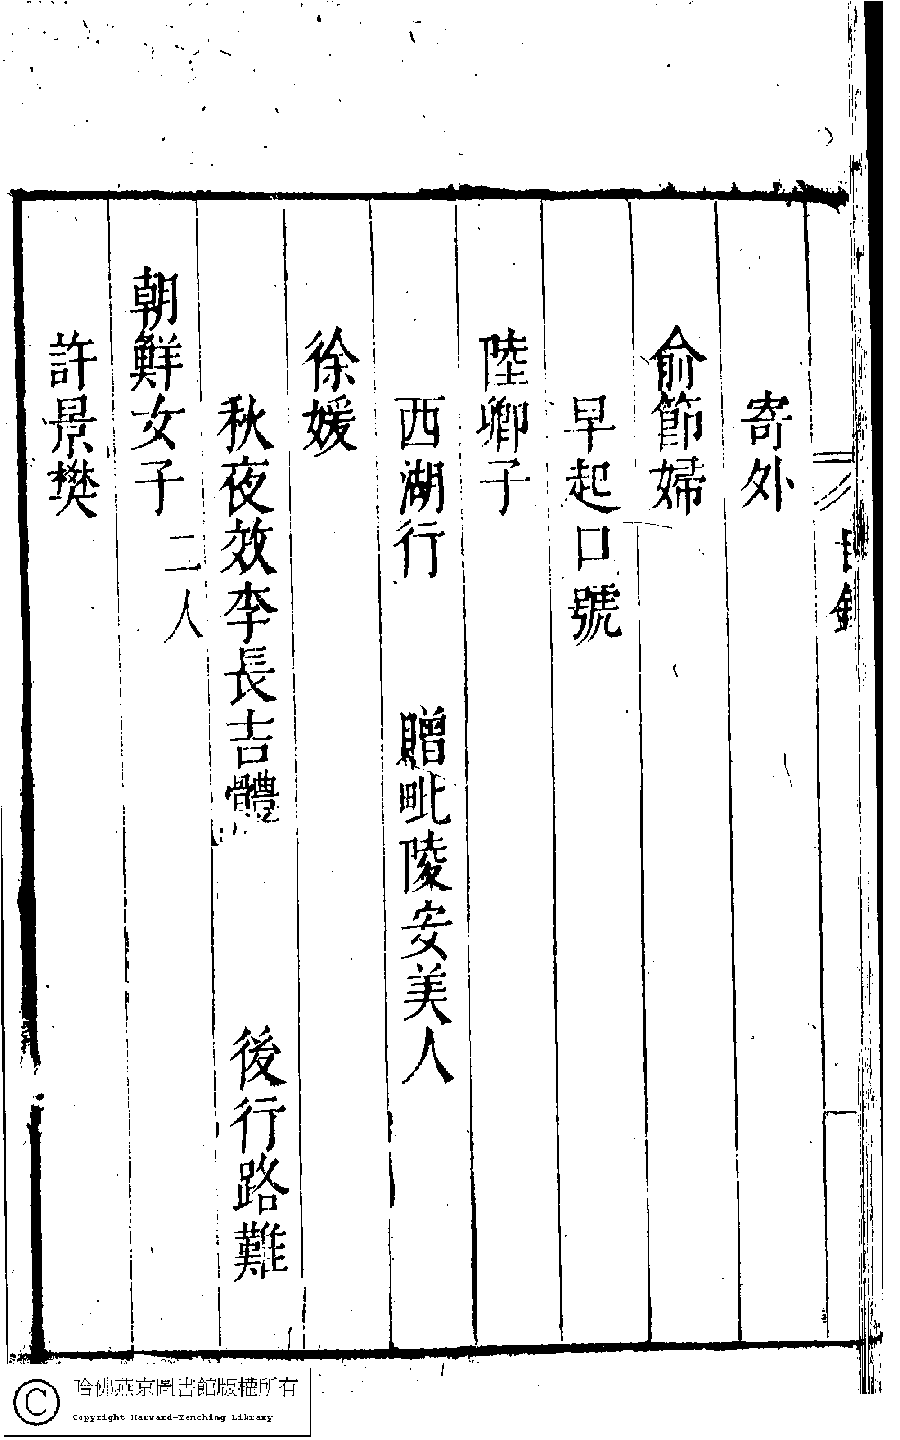 寄外
俞節婦
早起口號
陸卿子
西湖行 贈毗陵安美人
徐媛
秋夜效李長吉體 後行路難
朝鮮女子 二人
許景樊
目錄
哈佛燕京圖書館版權所有
Copyright Harvard-Yenching Library